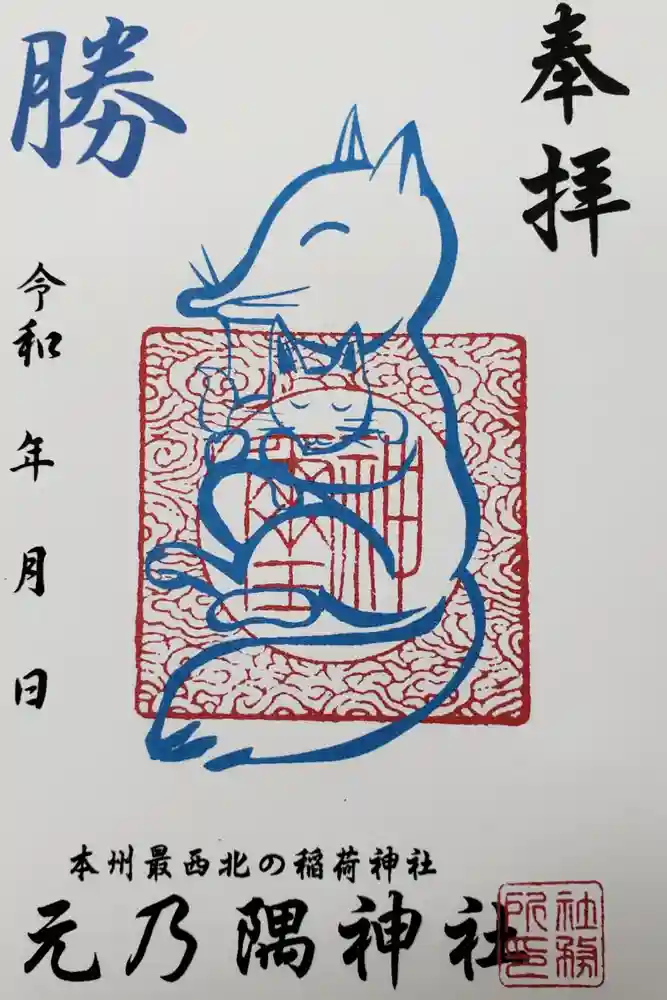 奉拝
勝
令和 年 月 日
本州最西北の稲荷神社
元乃隅神社
社務所印